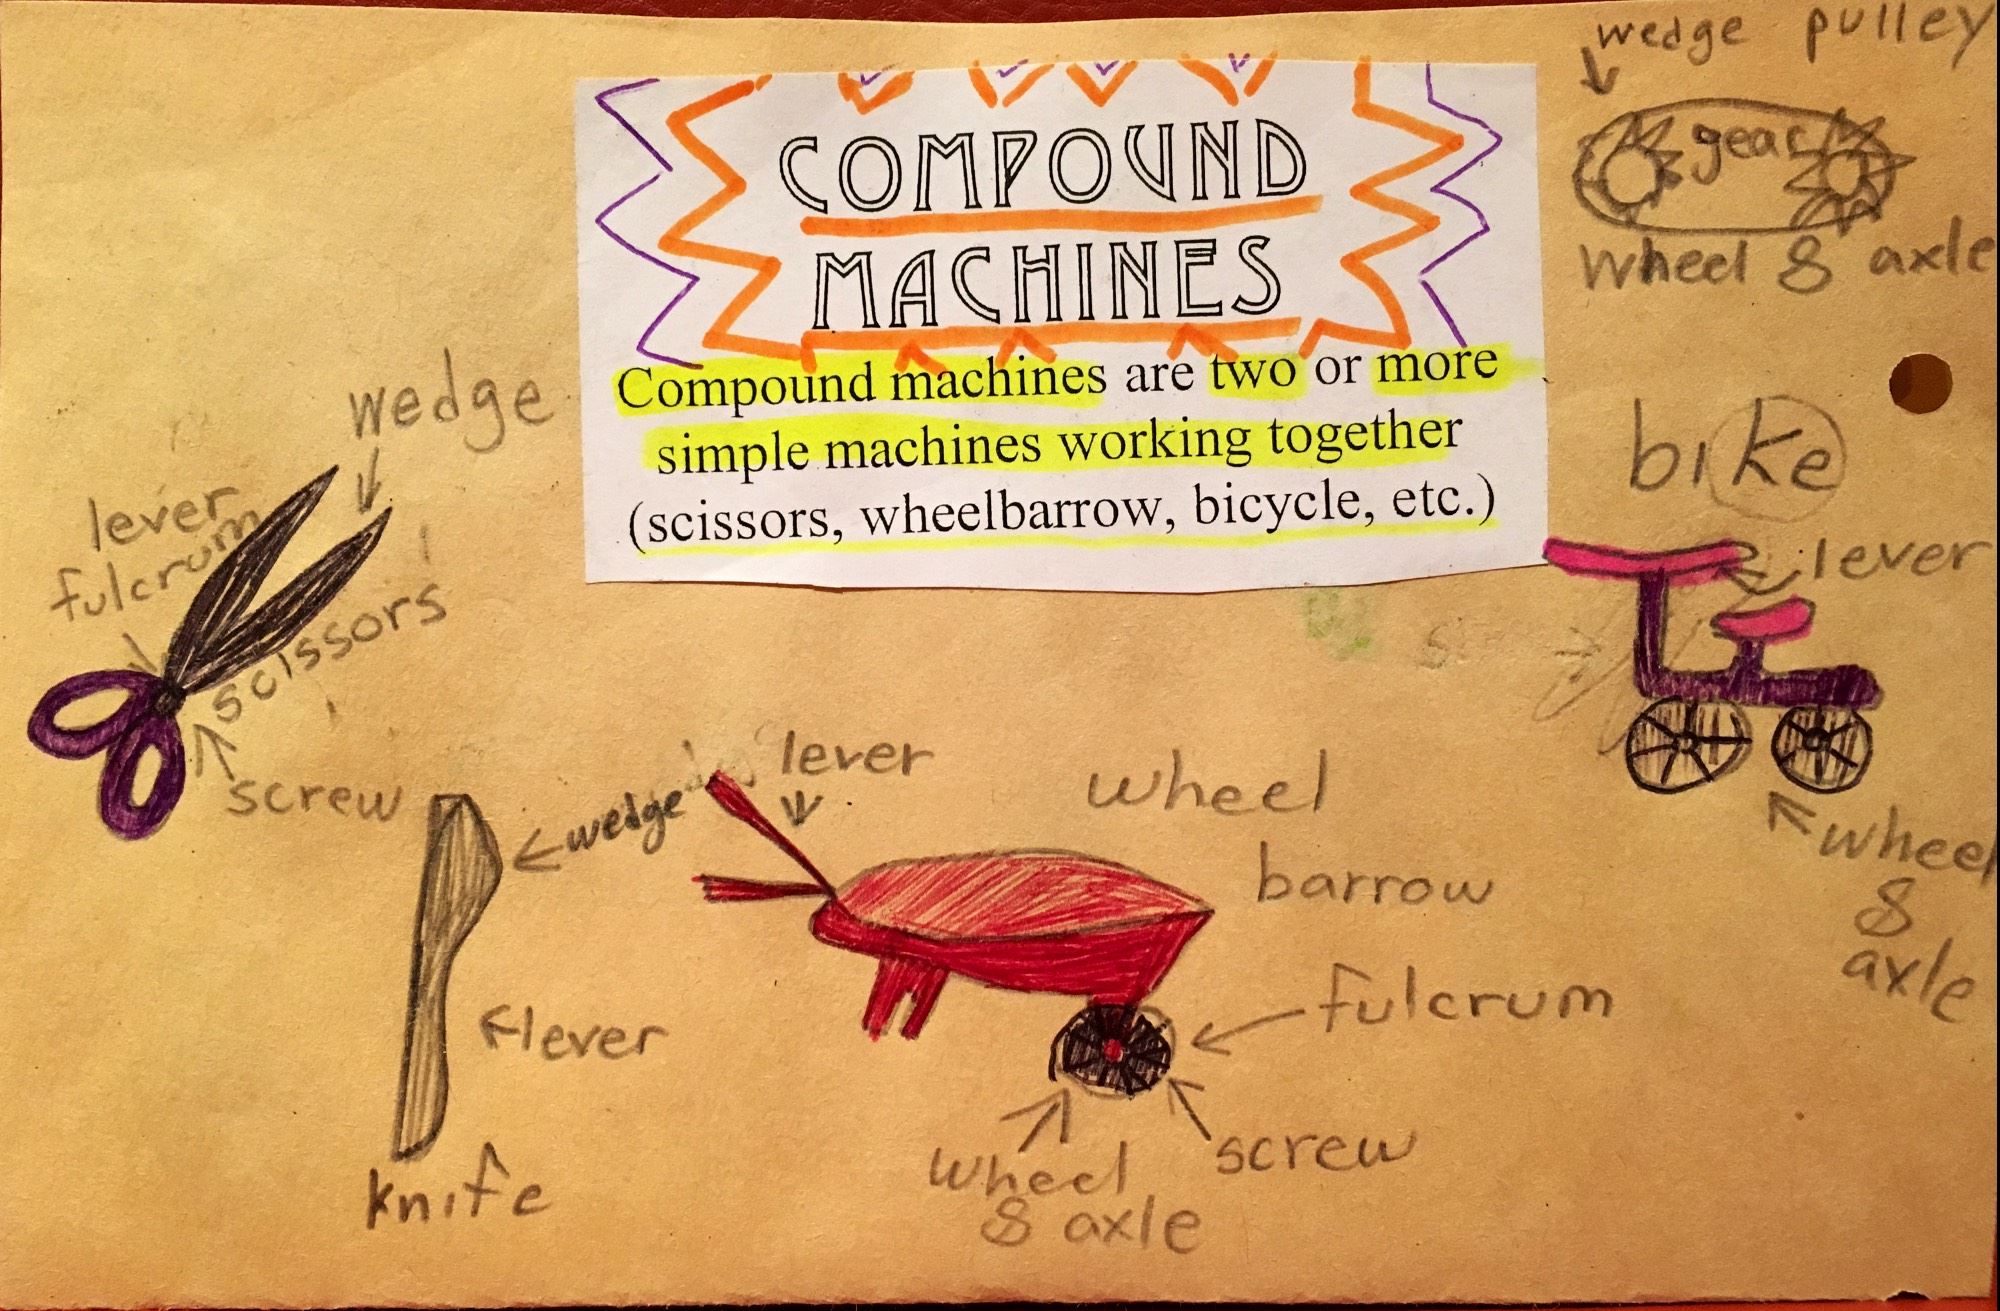 COMPOUND
MACHINES
Compound machines are two or more
simple machines working together
(scissors, wheelbarrow, bicycle, etc.)
wedge pulley
gear
wheel & axle
bike
lever
wheel
&
axle
wedge
lever
fulcrum
scissors
screw
wedge
lever
knife
lever
wheel
barrow
fulcrum
screw
wheel
& axle